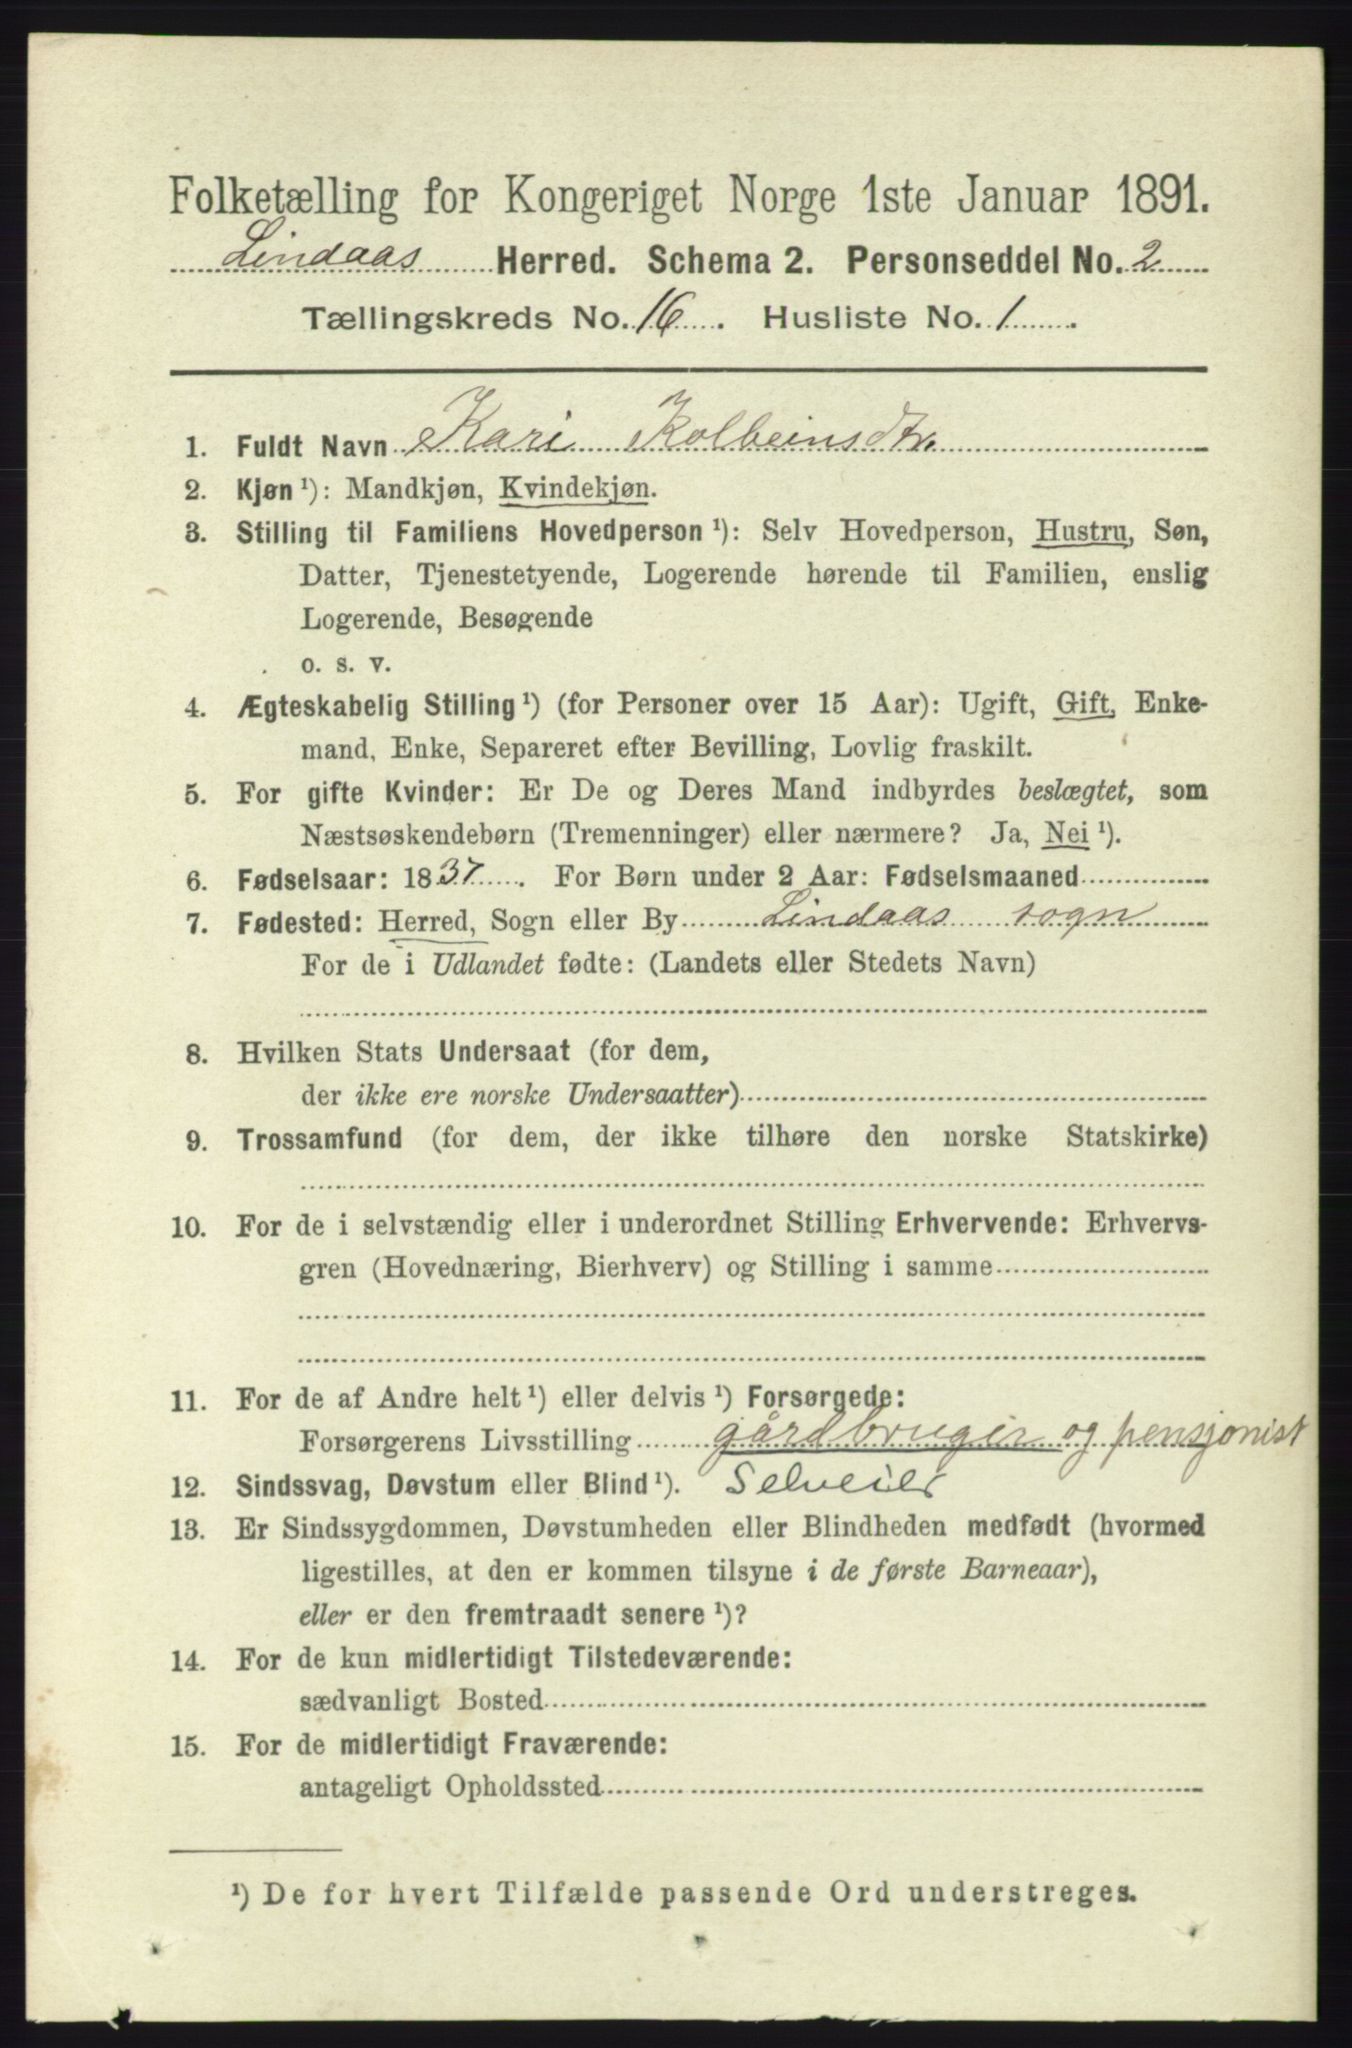 Folketælling for Kongeriget Norge 1ste Januar 1891.
Lindaas Herred. Schema 2. Personseddel No. 2
Tællingskreds No. 16. Husliste No. 1.
1. Fuldt Navn Kari Kolbeinsdtr.
2. Kjøn ¹): Mandkjøn, Kvindekjøn.
3. Stilling til Familiens Hovedperson ¹): Selv Hovedperson, Hustru, Søn,
Datter, Tjenestetyende, Logerende hørende til Familien, enslig
Logerende, Besøgende
o. s. v.
4. Ægteskabelig Stilling ¹) (for Personer over 15 Aar): Ugift, Gift, Enke-
mand, Enke, Separeret efter Bevilling, Lovlig fraskilt.
5. For gifte Kvinder: Er De og Deres Mand indbyrdes beslægtet, som
Næstsøskendebørn (Tremenninger) eller nærmere? Ja, Nei ¹).
6. Fødselsaar: 1837. For Børn under 2 Aar: Fødselsmaaned
7. Fødested: Herred, Sogn eller By Lindaas sogn
For de i Udlandet fødte: (Landets eller Stedets Navn)
8. Hvilken Stats Undersaat (for dem,
der ikke ere norske Undersaatter)
9. Trossamfund (for dem, der ikke tilhøre den norske Statskirke)
10. For de i selvstændig eller i underordnet Stilling Erhvervende: Erhvervs-
gren (Hovednæring, Bierhverv) og Stilling i samme
11. For de af Andre helt ¹) eller delvis ¹) Forsørgede:
Forsørgerens Livsstilling gårdbruger og pensjonist
12. Sindssvag, Døvstum eller Blind ¹). Selveier
13. Er Sindssygdommen, Døvstumheden eller Blindheden medfødt (hvormed
ligestilles, at den er kommen tilsyne i de første Barneaar),
eller er den fremtraadt senere ¹)?
14. For de kun midlertidigt Tilstedeværende:
sædvanligt Bosted
15. For de midlertidigt Fraværende:
antageligt Opholdssted
¹) De for hvert Tilfælde passende Ord understreges.